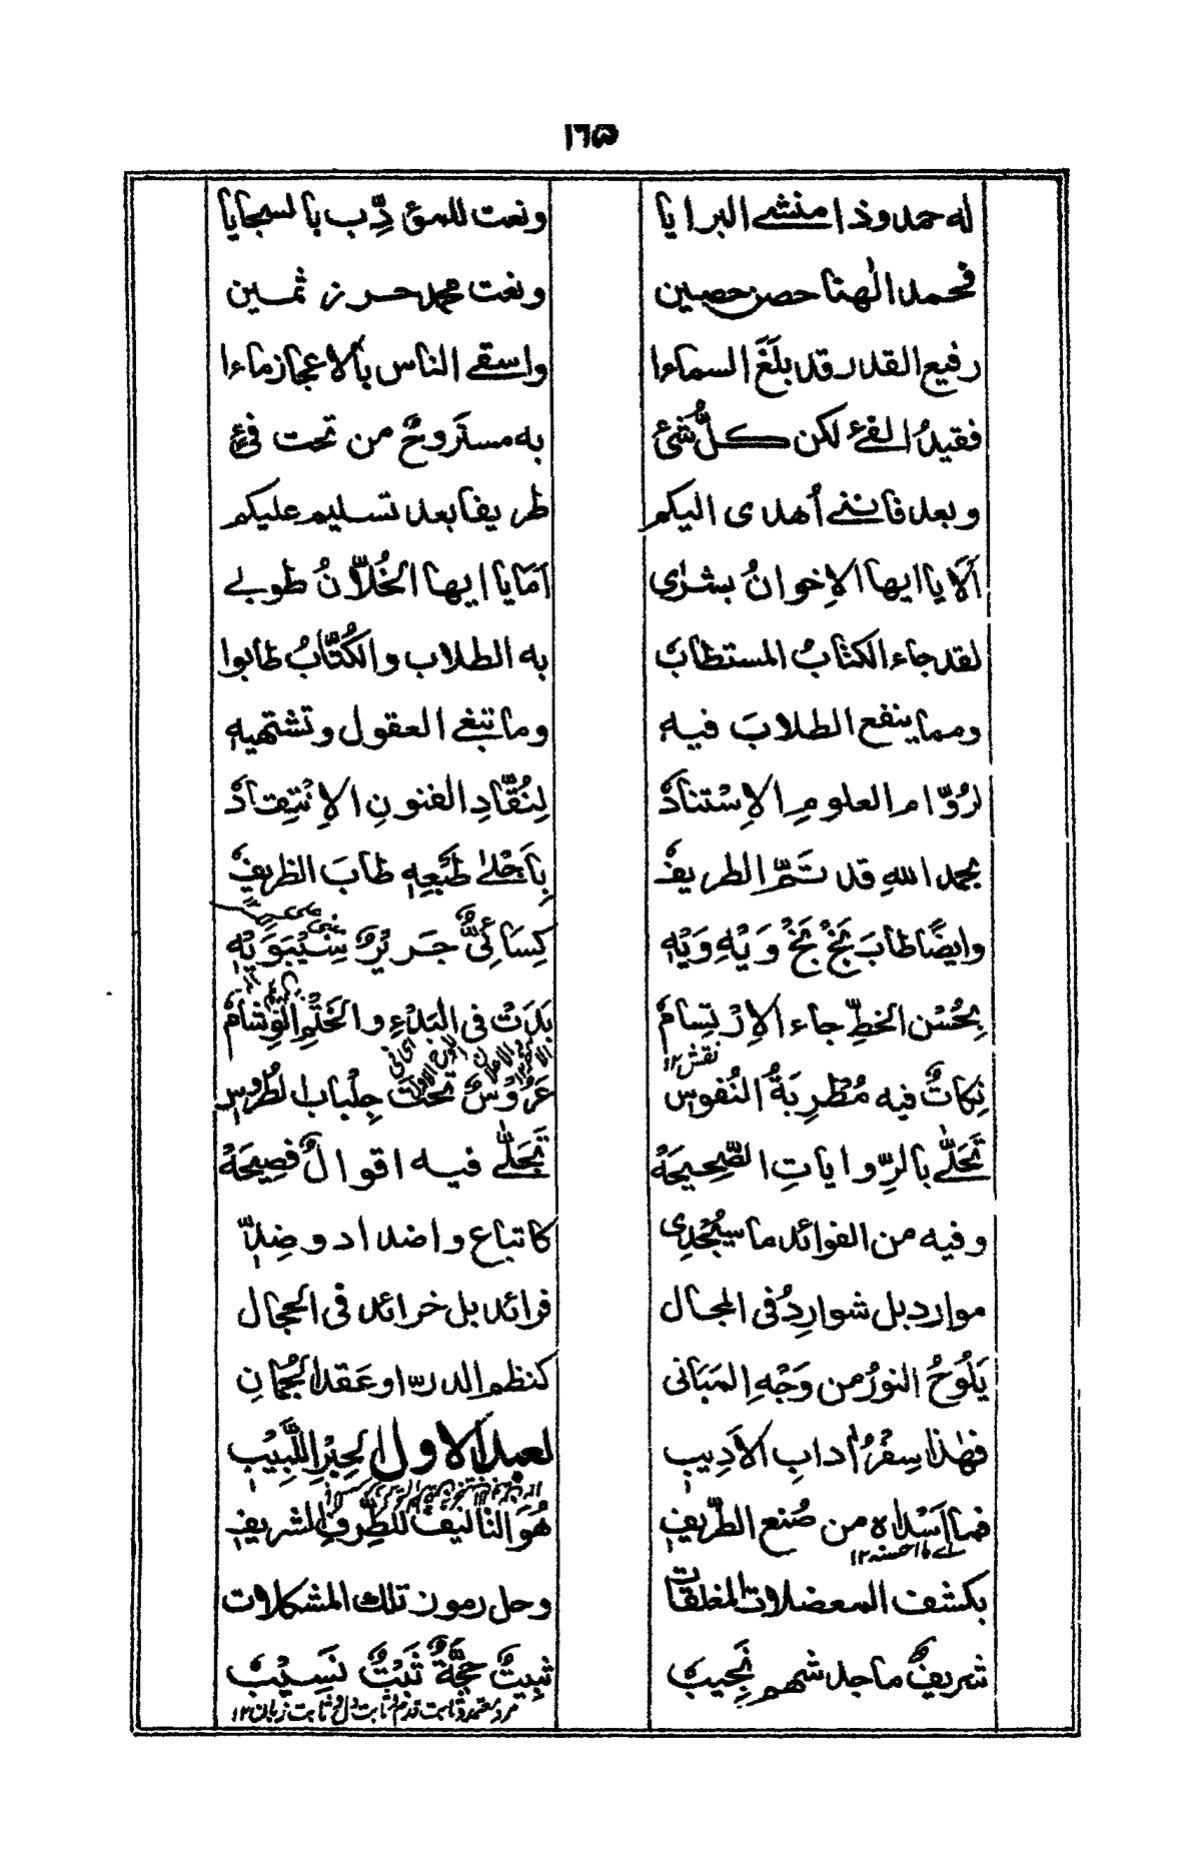 ١٦٥
له حمد وذا منشئ البرايا ونعت للمؤدِّب بالسجايا
فحمد الٰهنا حصن حصين ونعت محمد حرز ثمين
رفيع القدر قد بلَغَ السماءا واسقى الناس بالاعجاز ماءا
فقيدُ الفئ لكن كلُّ شئ به مستَروحٌ من تحت فئٍ
وبعد فاننى أُهدى اليكم ظريفا بعد تسليم عليكم
اَلَا يا ايها الاِخوانُ بشرٰى اَمَا يا ايها الخُلّانُ طوبى
لقد جاء الكتابُ المستطاب به الطلاب والكُتّابُ طابوا
ومما ينفع الطلابَ فيه وما تبغى العقول وتشتهيه
لرُوّام العلومِ الاِسْتنادُ لِنُقّادِ الفنونِ الاِنْتِقادُ
بحمد اللهِ قد تَمّ الطريفُ بِاَحْلىٰ طَبْعِه طابَ الظريفُ
وايضًا طابَ بَخْ بَخْ وَيْهِ وَيْهِ كِسَائِىٌّ جَرِيْرٌ سِيْبَوَيْهِ
بِحُسْن الخطِّ جاء الاِرْتِسامُ بَدَتْ فى البَدْءِ والخَتْمِ الْوِشامُ
نقش ١٢
نِكاتٌ فيه مُطْرِبَةُ النُفوسِ عَرُوْسٌ تحتَ جِلْبابِ الطُرُوْسِ
تَحَلّٰى بالرِّواياتِ الصَّحِيحَةْ تَجَلّٰى فيه اقوالٌ فصِيحَةْ
وفيه من الفوائد ما سيُجْدِى كاتباع واضداد وضِدٍّ
موارد بل شوارِدُ فى المجال فرائد بل خرائد فى الحجال
يَلُوْحُ النورُ من وَجْهِ المَبَانى كنظم الدرّ او عَقد الجُمانِ
فهٰذا سِفْرُ اٰدابِ الاَدِيبِ لعبد الاول الحِبْرِ اللَّبِيْبِ
فما اَسْداه من صُنع الطَّرِيفِ هُوَ التاليفُ للطِّرفِ الشريفِ
اے ما احسنه ١٢
بكشف المعضلات المغلقات وحل رموز تلك المشكلات
شريفٌ ماجد شهم نَجِيبٌ ثبيتٌ حجَّةٌ ثَبْتٌ نَسِيْبٌ
مرد معتمد ثابت قدم ثابت دل ثابت زبان ١٢